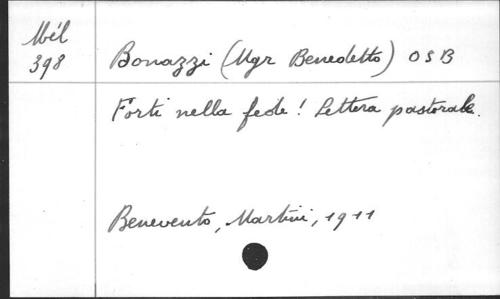 Mél
398
Bonazzi (Mgr Benedetto) OSB
Forti nella fede! Lettera pastorale.
Benevento, Martini, 1911